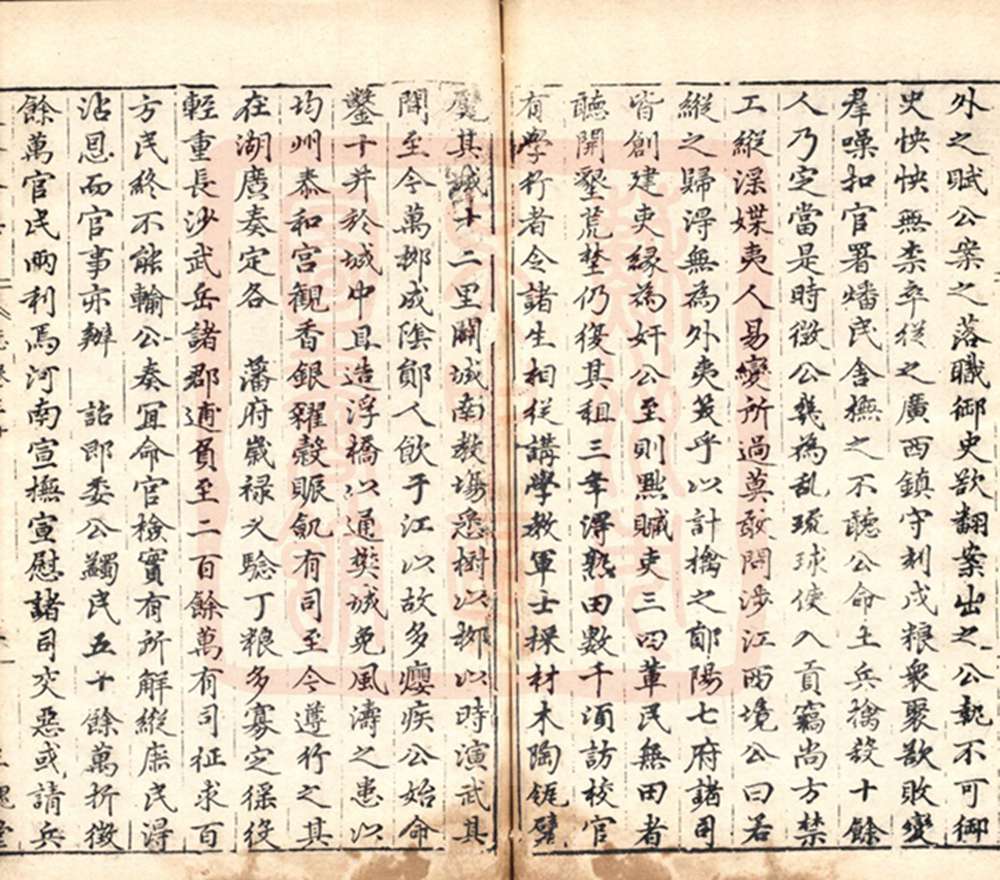 外之賦公案之落職御史欲翻案出之公執不可御
史怏怏無柰卒從之廣西鎮守刻戍粮衆聚欲敗變
羣噪扣官署燔民舍撫之不聽公命土兵擒殺十餘
人乃定當是時微公幾為乱琉球使入貢竊尚方禁
工縱深媟夷人易變所過莫敢問涉江西境公曰若
縱之歸得無為外夷笑乎以計擒之鄖陽七府諸司
皆創建吏緣為奸公至則黜贓吏三四輩民無田者
聽開墾荒埜仍復其租三年得熟田數千湏訪校官
有學行者令諸生相從講學教軍士採材木陶瓴甓
甃其城十二里闢城南教塲悉樹以栁以時演武其
間至今萬栁成隂鄖人飲于江以故多癭疾公始命
鑿十井於城中且造浮橋以通樊城免風濤之患以
均州泰和宮觀香銀糴穀賑飢有司至今遵行之其
在湖廣奏定各　藩府歲禄又驗丁粮多寡定徭役
輕重長沙武岳諸郡逋負至二百餘萬有司征求百
方民終不能輸公奏冝命官檢實有所解縱庶民得
沾恩而官事亦辦　詔即委公蠲民五十餘萬折徵
餘萬官民兩利焉河南宣撫宣慰諸司交惡或請兵